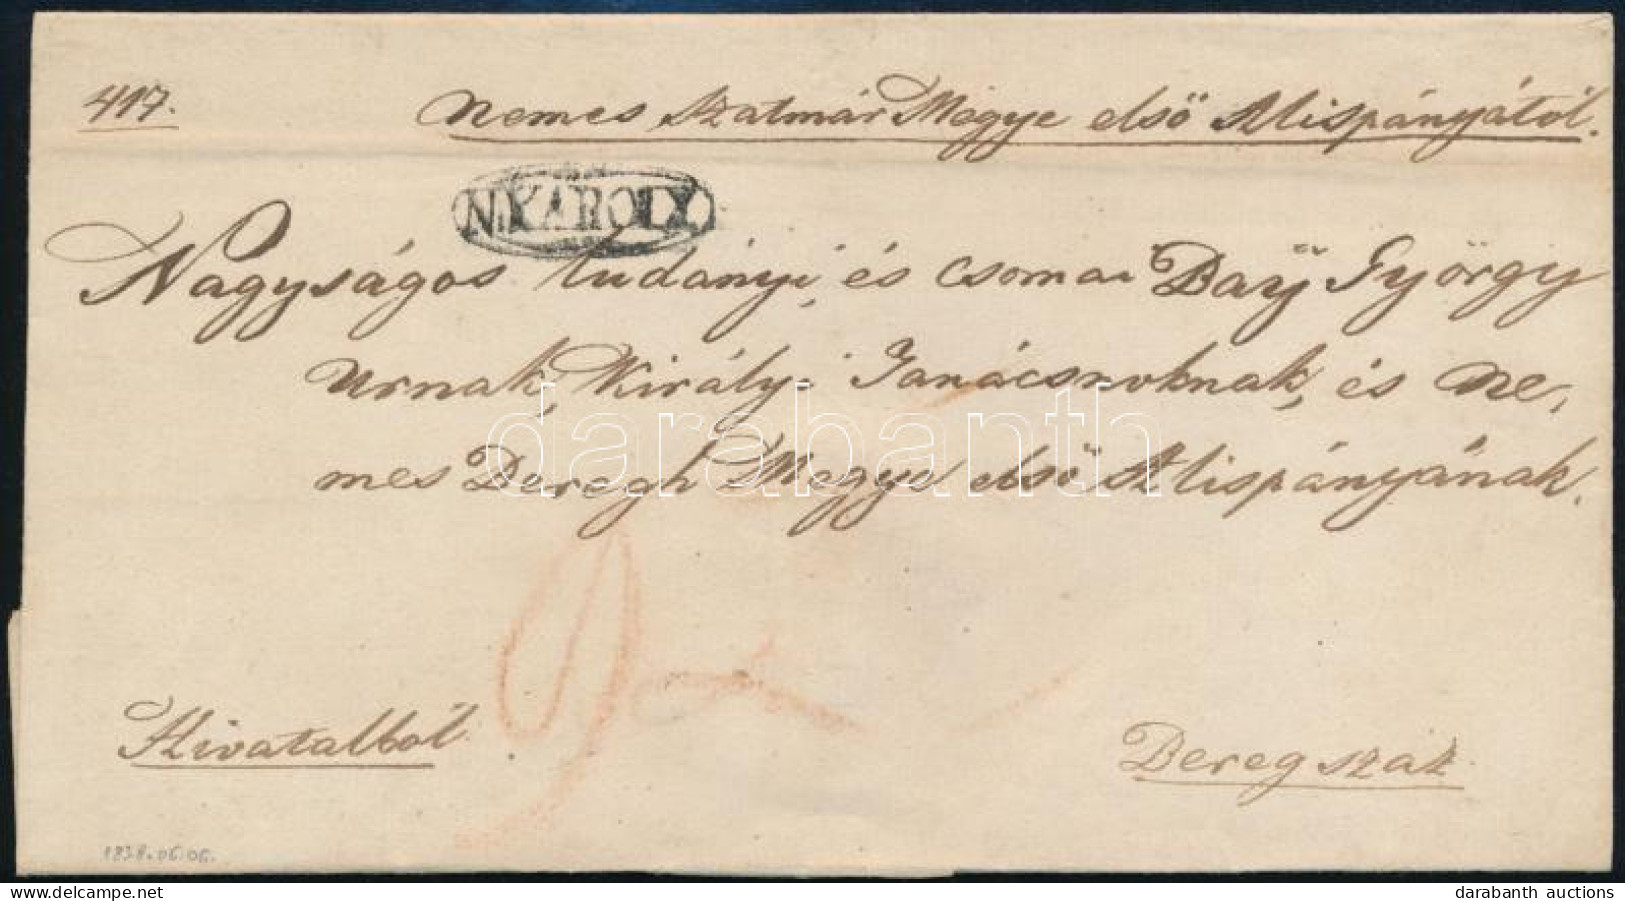 417.
Nemes Szatmár Megye első Alispányától.
N.KAROLY.
Nagyságos Ludányi, és Csomai Baÿ György
Urnak, Királyi Tanácsnoknak, és Ne,
mes Beregh Megye első Alispányának.
darabanth
Hivatalból.
Beregszáz.
1838.06.06.
darabanth auctions